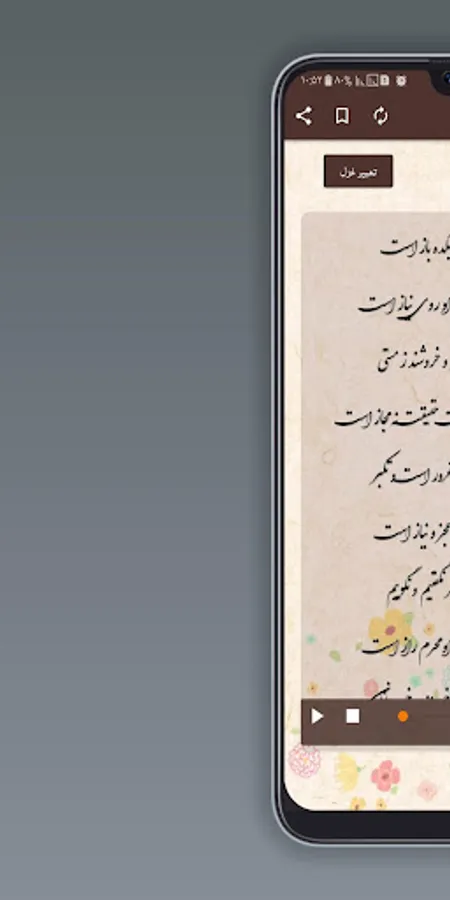 ۱۰:۵۲ ۸۰%
تغییر غزل
یکده باز است
روی نیاز است
و خروشند ز مستی
حقیقت نه مجاز است
غرور است و تکبر
عجز و نیاز است
نگفتیم و نگوییم
محرم راز است